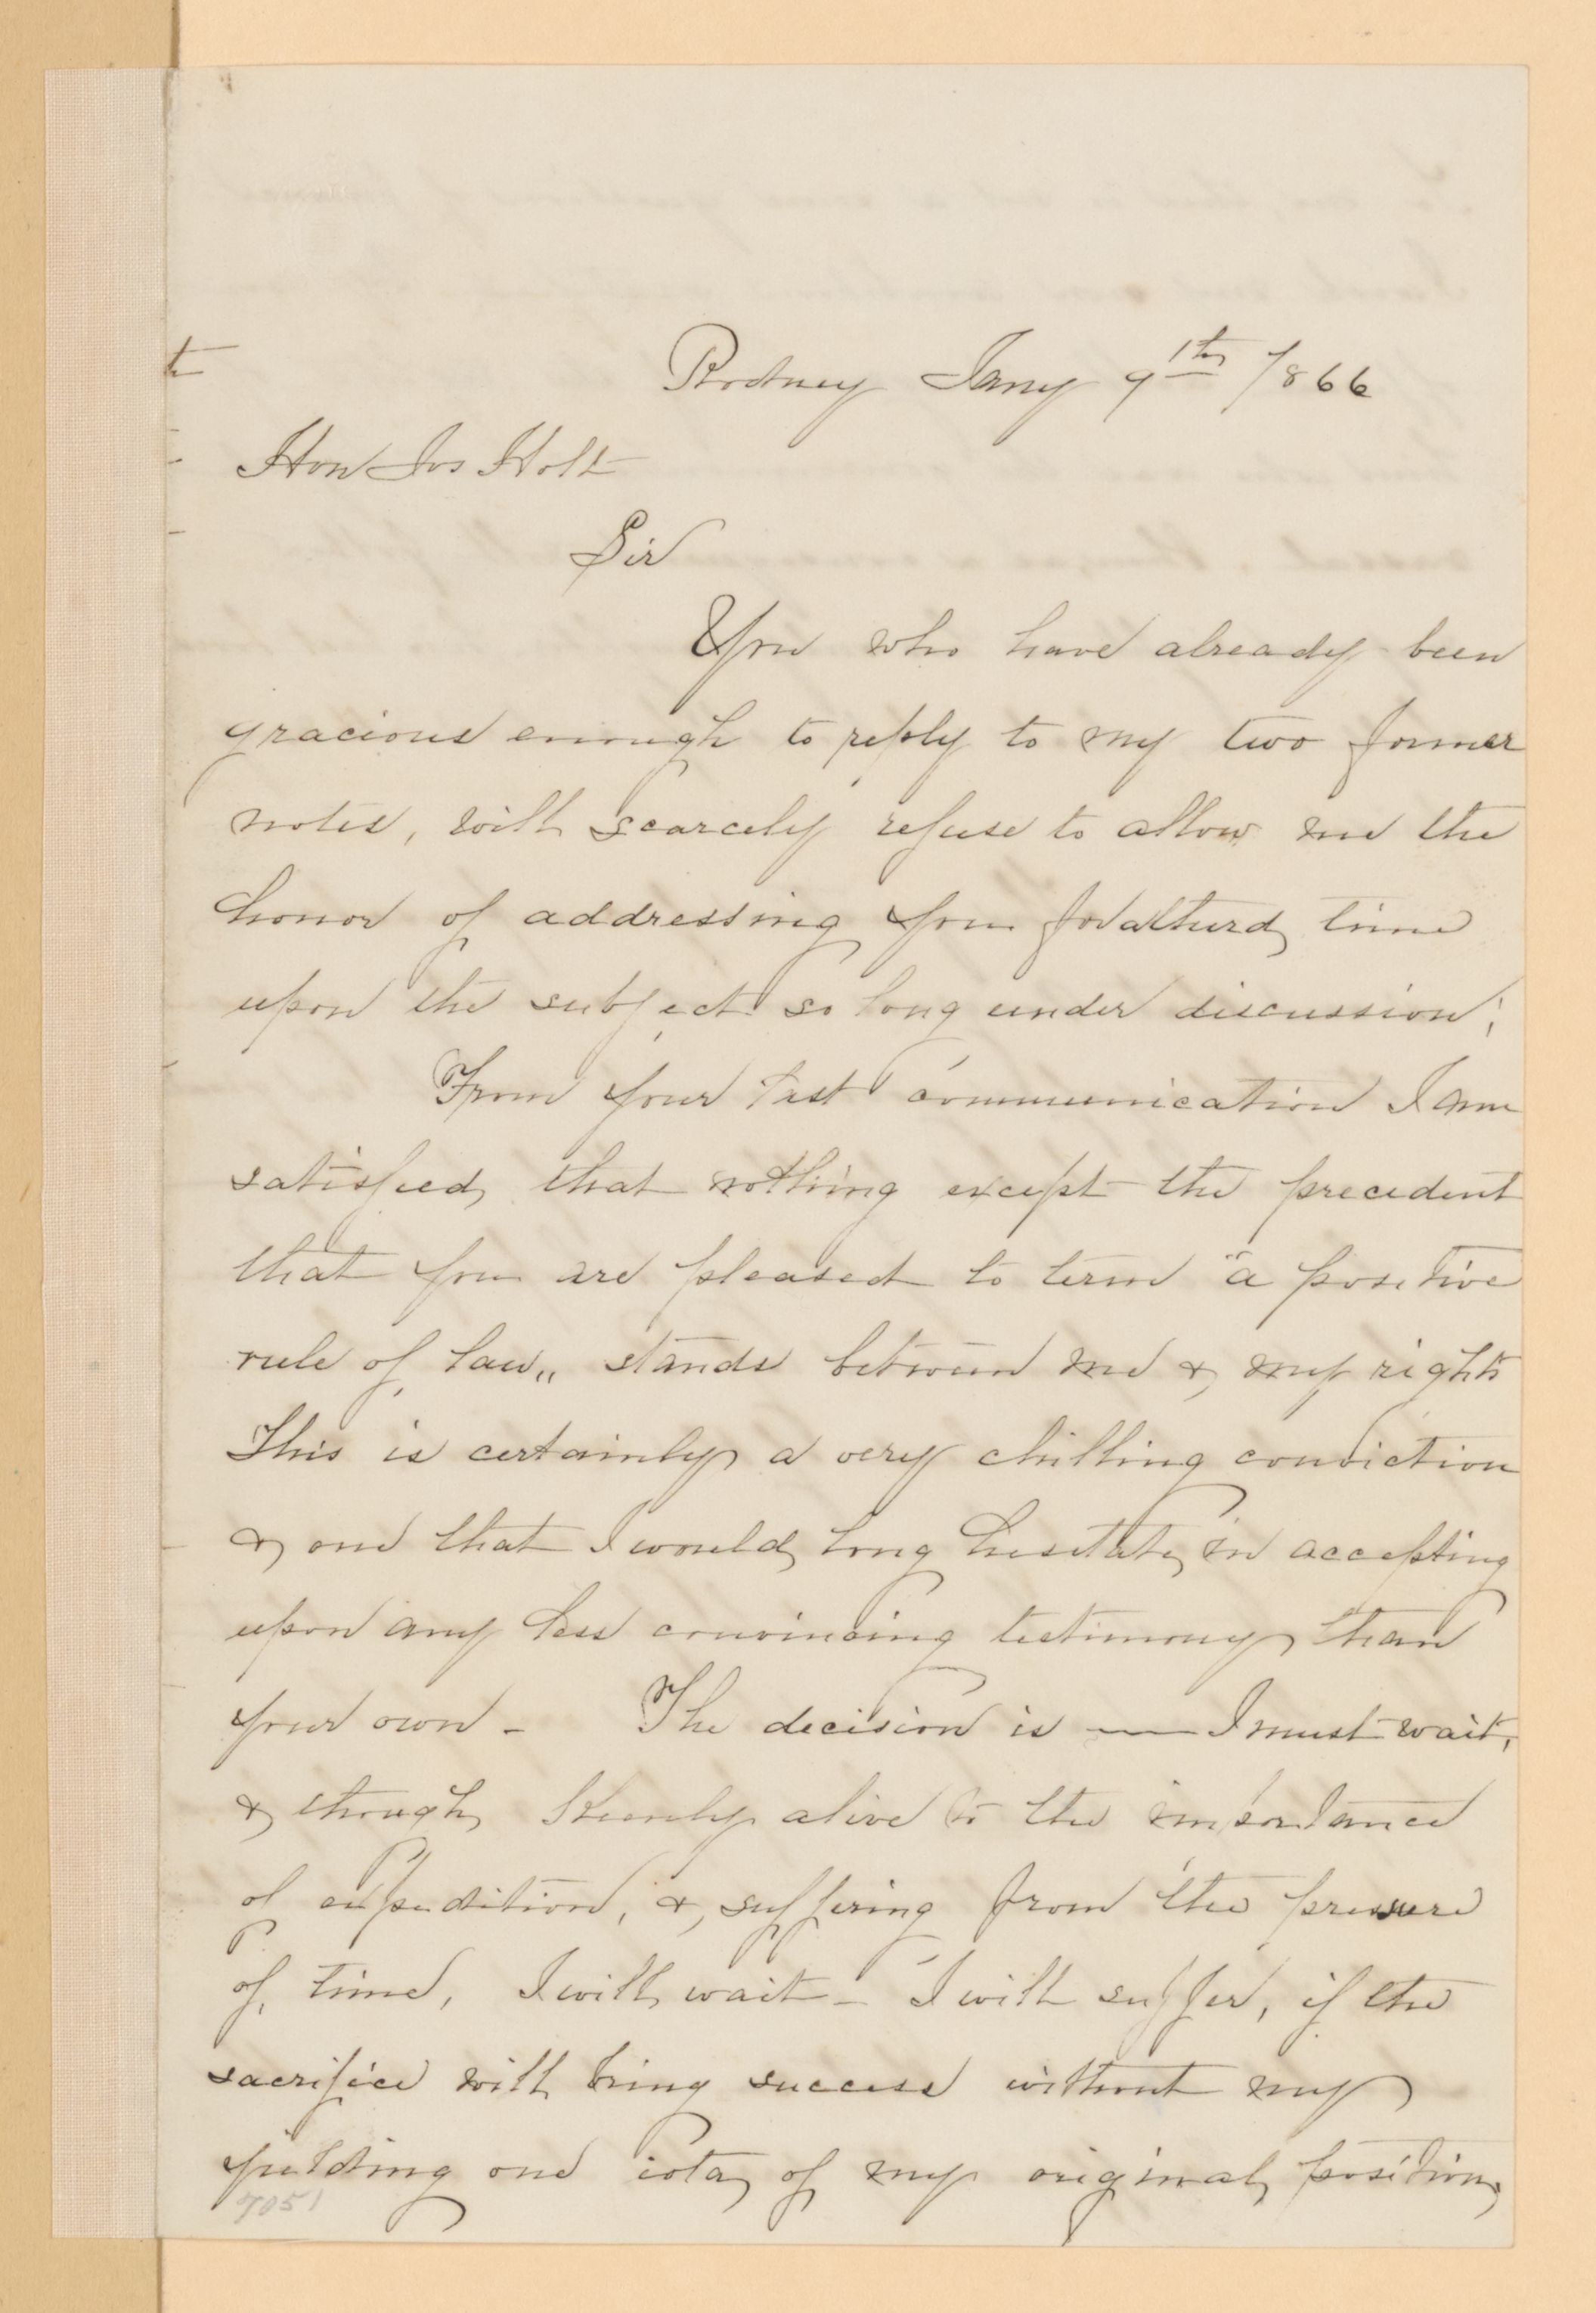 Rodney Jany 9th 1866
Hon Jos Holt
Sir
You who have already been
gracious enough to reply to my two former
notes, will scarcely refuse to allow me the
honor of addressing you for a third time
upon the subject so long under discussion;
From your last communication I am
satisfied, that nothing except the precedent
that you are pleased to term "a positive
rule of law,, stands between me & my rights
This is certainly a very chilling conviction
& one that I would long hesitate, in accepting
upon any less convincing testimony than
your own - The decision is — I must wait,
& though keenly alive to the importance
of expedition, & suffering from the pressure
of time, I will wait - I will suffer, if the
sacrifice will bring success without my
yielding one iota, of my original position,
7051